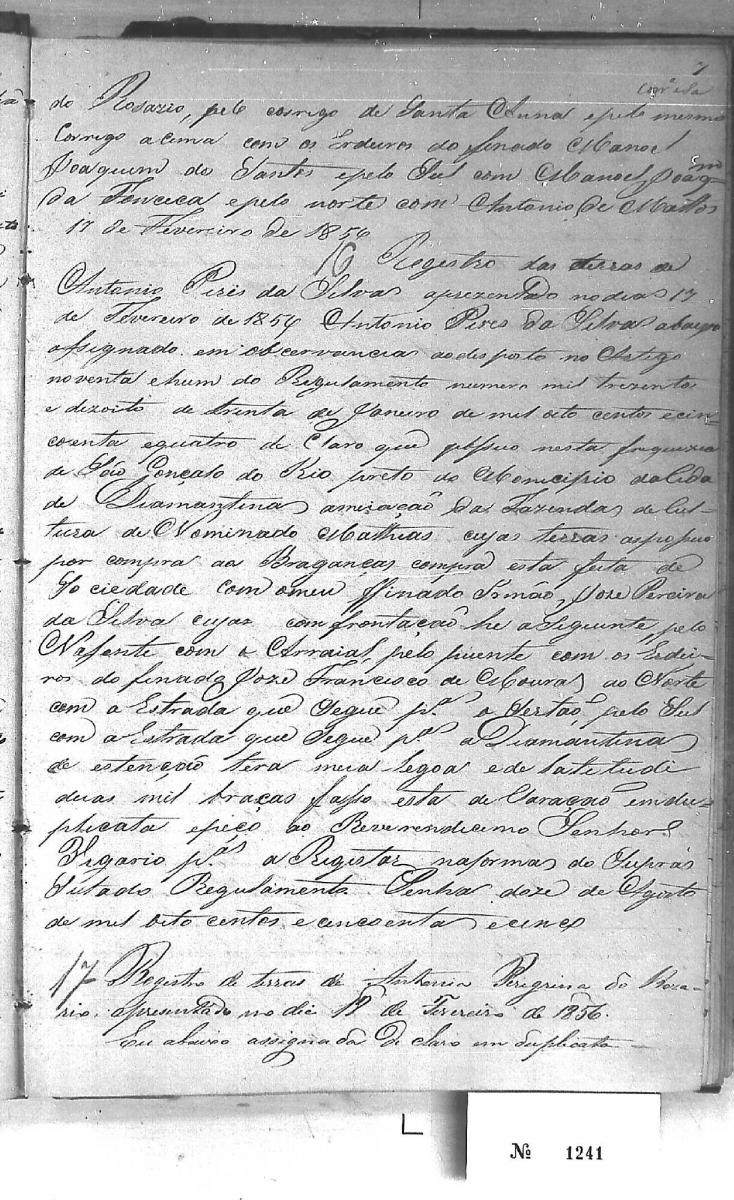 7
do Rosario, pelo corrigo de Santa Anna e pelo mesmo
Corrigo acima com os Erdeiros do finado Manoel
Joaquim do Santos e pelo Sul com Manoel Joaqm
da Fonceca e pelo norte com Antonio de Mattos
17 de Fevereiro de 1856
16 Registro das terras de
Antonio Pires da Silva aprezentado no dia 17
de Fevereiro de 1856 Antonio Pires da Silva abaixo
assignado em observancia ao desposto no Artigo
noventa e hum do Regulamento numero mil trezentos
e dezoito de trinta de Janeiro de mil oito centos e cin-
coenta e quatro de Claro que possuo nesta freguezia
de São Gonçalo do Rio preto do Monicipio da Cida
de Diamantina a das Fazendas de Cul-
tura de Nominado Mathias cujas terras as pocuo
por compra aos Braganças compra esta feita de
Sociedade com o meu Finado Irmão, Joze Pereira
da Silva cujas comfrontação he a Seguinte, pelo
Nassente com o Arraial, pelo puente com os Erdei-
ros do finado Joze Francisco de Moura, ao Norte
com a Estrada que Segue p.a o Sertão, pelo Sul
com a Estrada que Segue p.a a Diamantina
de estenção tera meia legoa e de latetude
duas mil braças fasso esta de Claração em du-
plicata e peço ao Reverendicimo Senhor
Vigario p.a a Registar na forma do Supra
Sitado Regulamento Penha doze de Agosto
de mil oito centos e cincoenta e cinco
17 Registro de terras de Antonia Peregrina do Roza-
rio apresentado no dia 17 de Fevereiro de 1856.
Eu abaixo assignada De claro em duplicata
Nº 1241